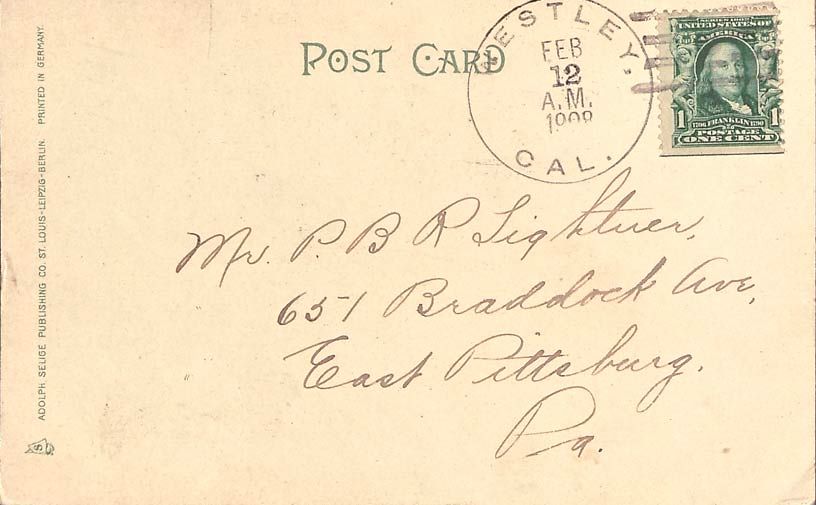 POST CARD
ESTLEY.
FEB
12
A.M.
1908
CAL.
SERIES 1902
UNITED STATES OF
AMERICA
1 1706 FRANKLIN 1790 1
POSTAGE
ONE CENT
Mr. P. B R Lightner,
651 Braddock Ave,
East Pittsburg.
Pa.
ADOLPH SELIGE PUBLISHING CO. ST. LOUIS-LEIPZIG-BERLIN. PRINTED IN GERMANY.
S